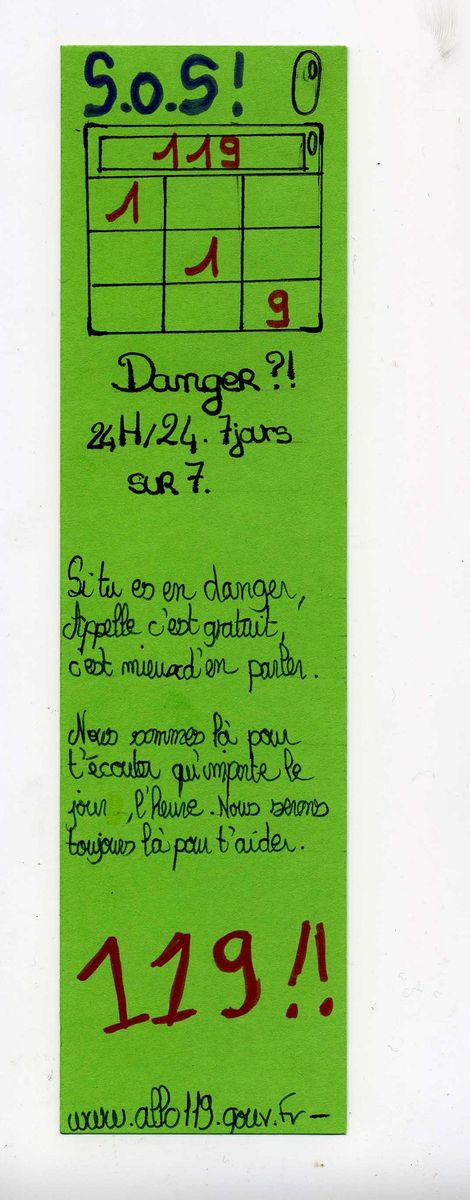 S.O.S!
119
1
1
9
Danger ?!
24H/24. 7jours
SUR 7.
Si tu es en danger,
Appelle c'est gratuit,
c'est mieux d'en parler.
Nous sommes là pour
t'écouter qu'importe le
jour, l'heure. Nous serons
toujours là pour t'aider.
119!!
www.allo119.gouv.fr-